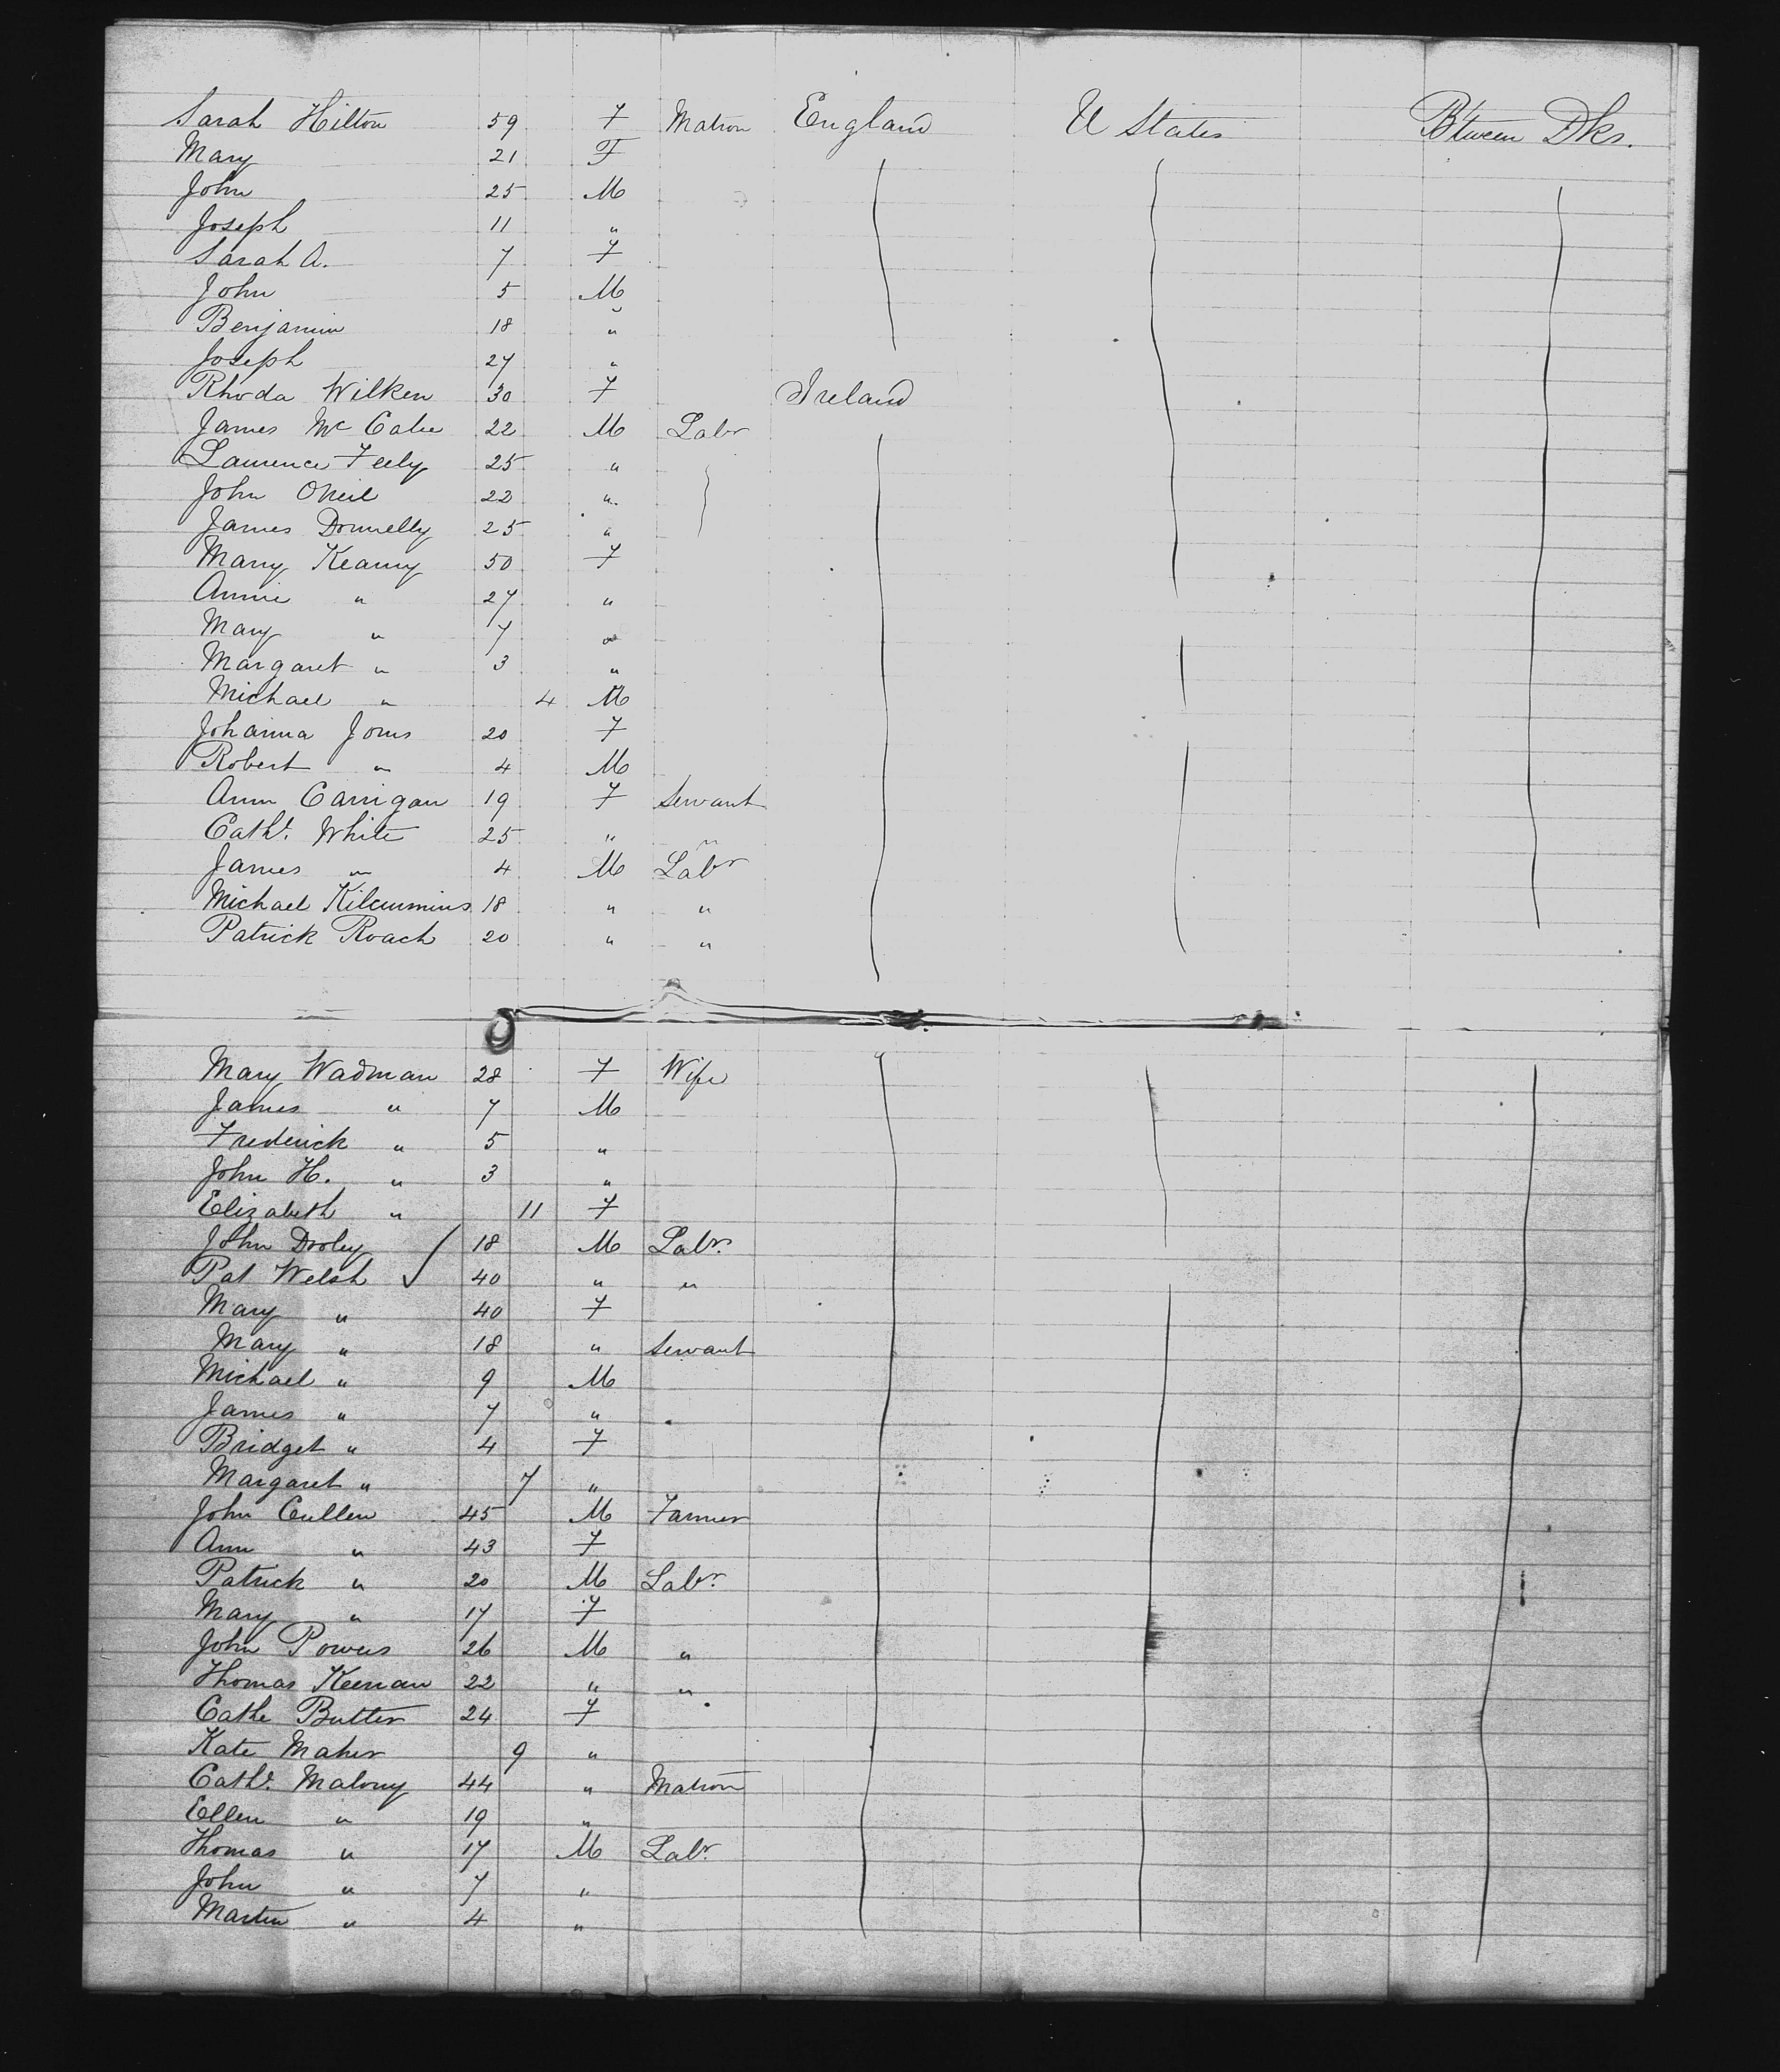 Sarah Hilton 59 F Matron England U States Btween Dks.
Mary 21 F
John 25 M
Joseph 11 "
Sarah A. 7 F
John 5 M
Benjamin 18 "
Joseph 27 "
Rhoda Wilken 30 F Ireland
James Mc Cabe 22 M Labr
Laurence Feely 25 "
John ONeil 22 "
James Donnelly 25 "
Mary Kearny 50 F
Annie " 27 "
Mary " 7 "
Margaret " 3 "
Michael " 4 M
Johanna Jones 20 F
Robert " 4 M
Ann Carrigan 19 F Servant
Cathe. White 25 " "
James " 4 M Labr
Michael Kilcummins 18 " "
Patrick Roach 20 " "
Mary Wadman 28 F Wife
James " 7 M
Frederick " 5 "
John H. " 3 "
Elizabeth " 11 F
John Dooley ✓ 18 M Labr.
Pat Welsh ✓ 40 " "
Mary " 40 F
Mary " 18 " Servant
Michael " 9 M
James " 7 "
Bridget " 4 F
Margaret " 7 "
John Cullen 45 M Farmer
Ann " 43 F
Patrick " 20 M Labr.
Mary " 17 F
John Powers 26 M "
Thomas Keenan 22 " "
Cathe Butler 24 F
Kate Maher 9 "
Cathe. Malony 44 " Matron
Ellen " 19 "
Thomas " 17 M Labr.
John " 7 "
Martin " 4 "